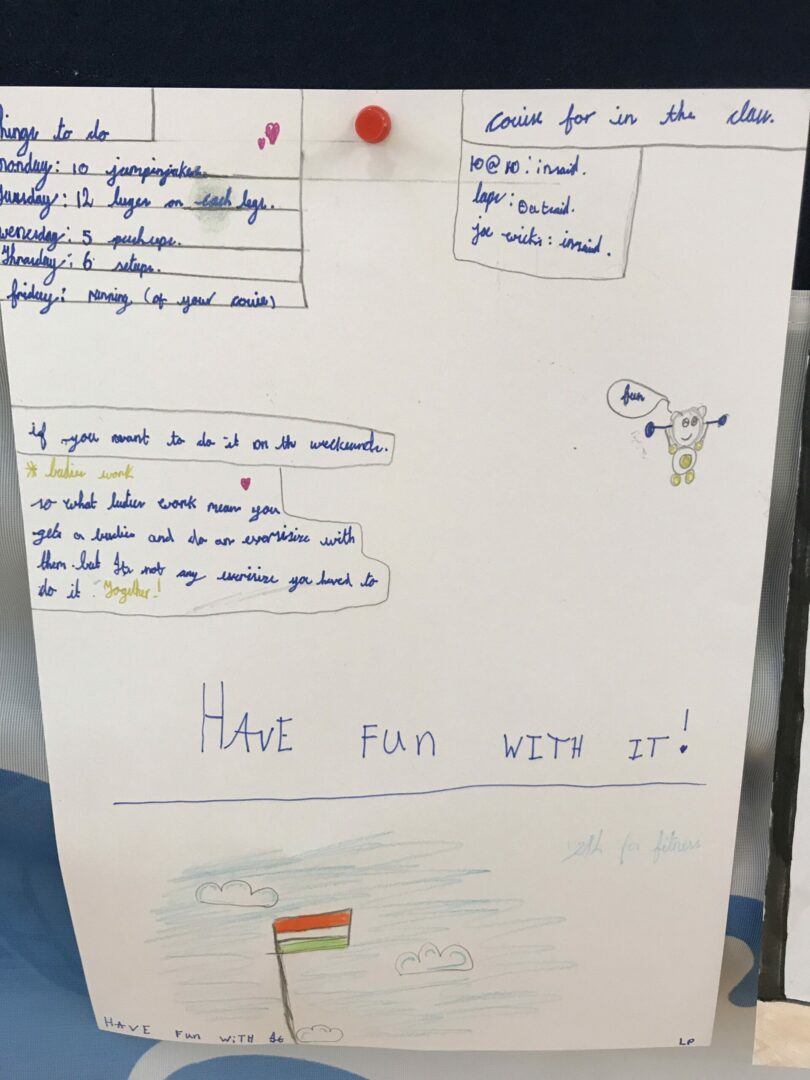 hings to do
monday: 10 jampinjakes.
Tuesday: 12 luges on each legs.
wenesday: 5 puchups.
Thrusday: 6 setups.
friday: running (of your couise)
couise for in the class.
10@10: insaid.
laps: Outsaid.
joe wicks: insaid.
fun
if you want to do it on the weekends.
* budies work
so what budies work mean you
gets a budie and do an exersisize with
them but its not any exersise you haved to
do it Together!
HAVE FUN WITH IT!
for fitness
HAVE FUN WITH It
LP